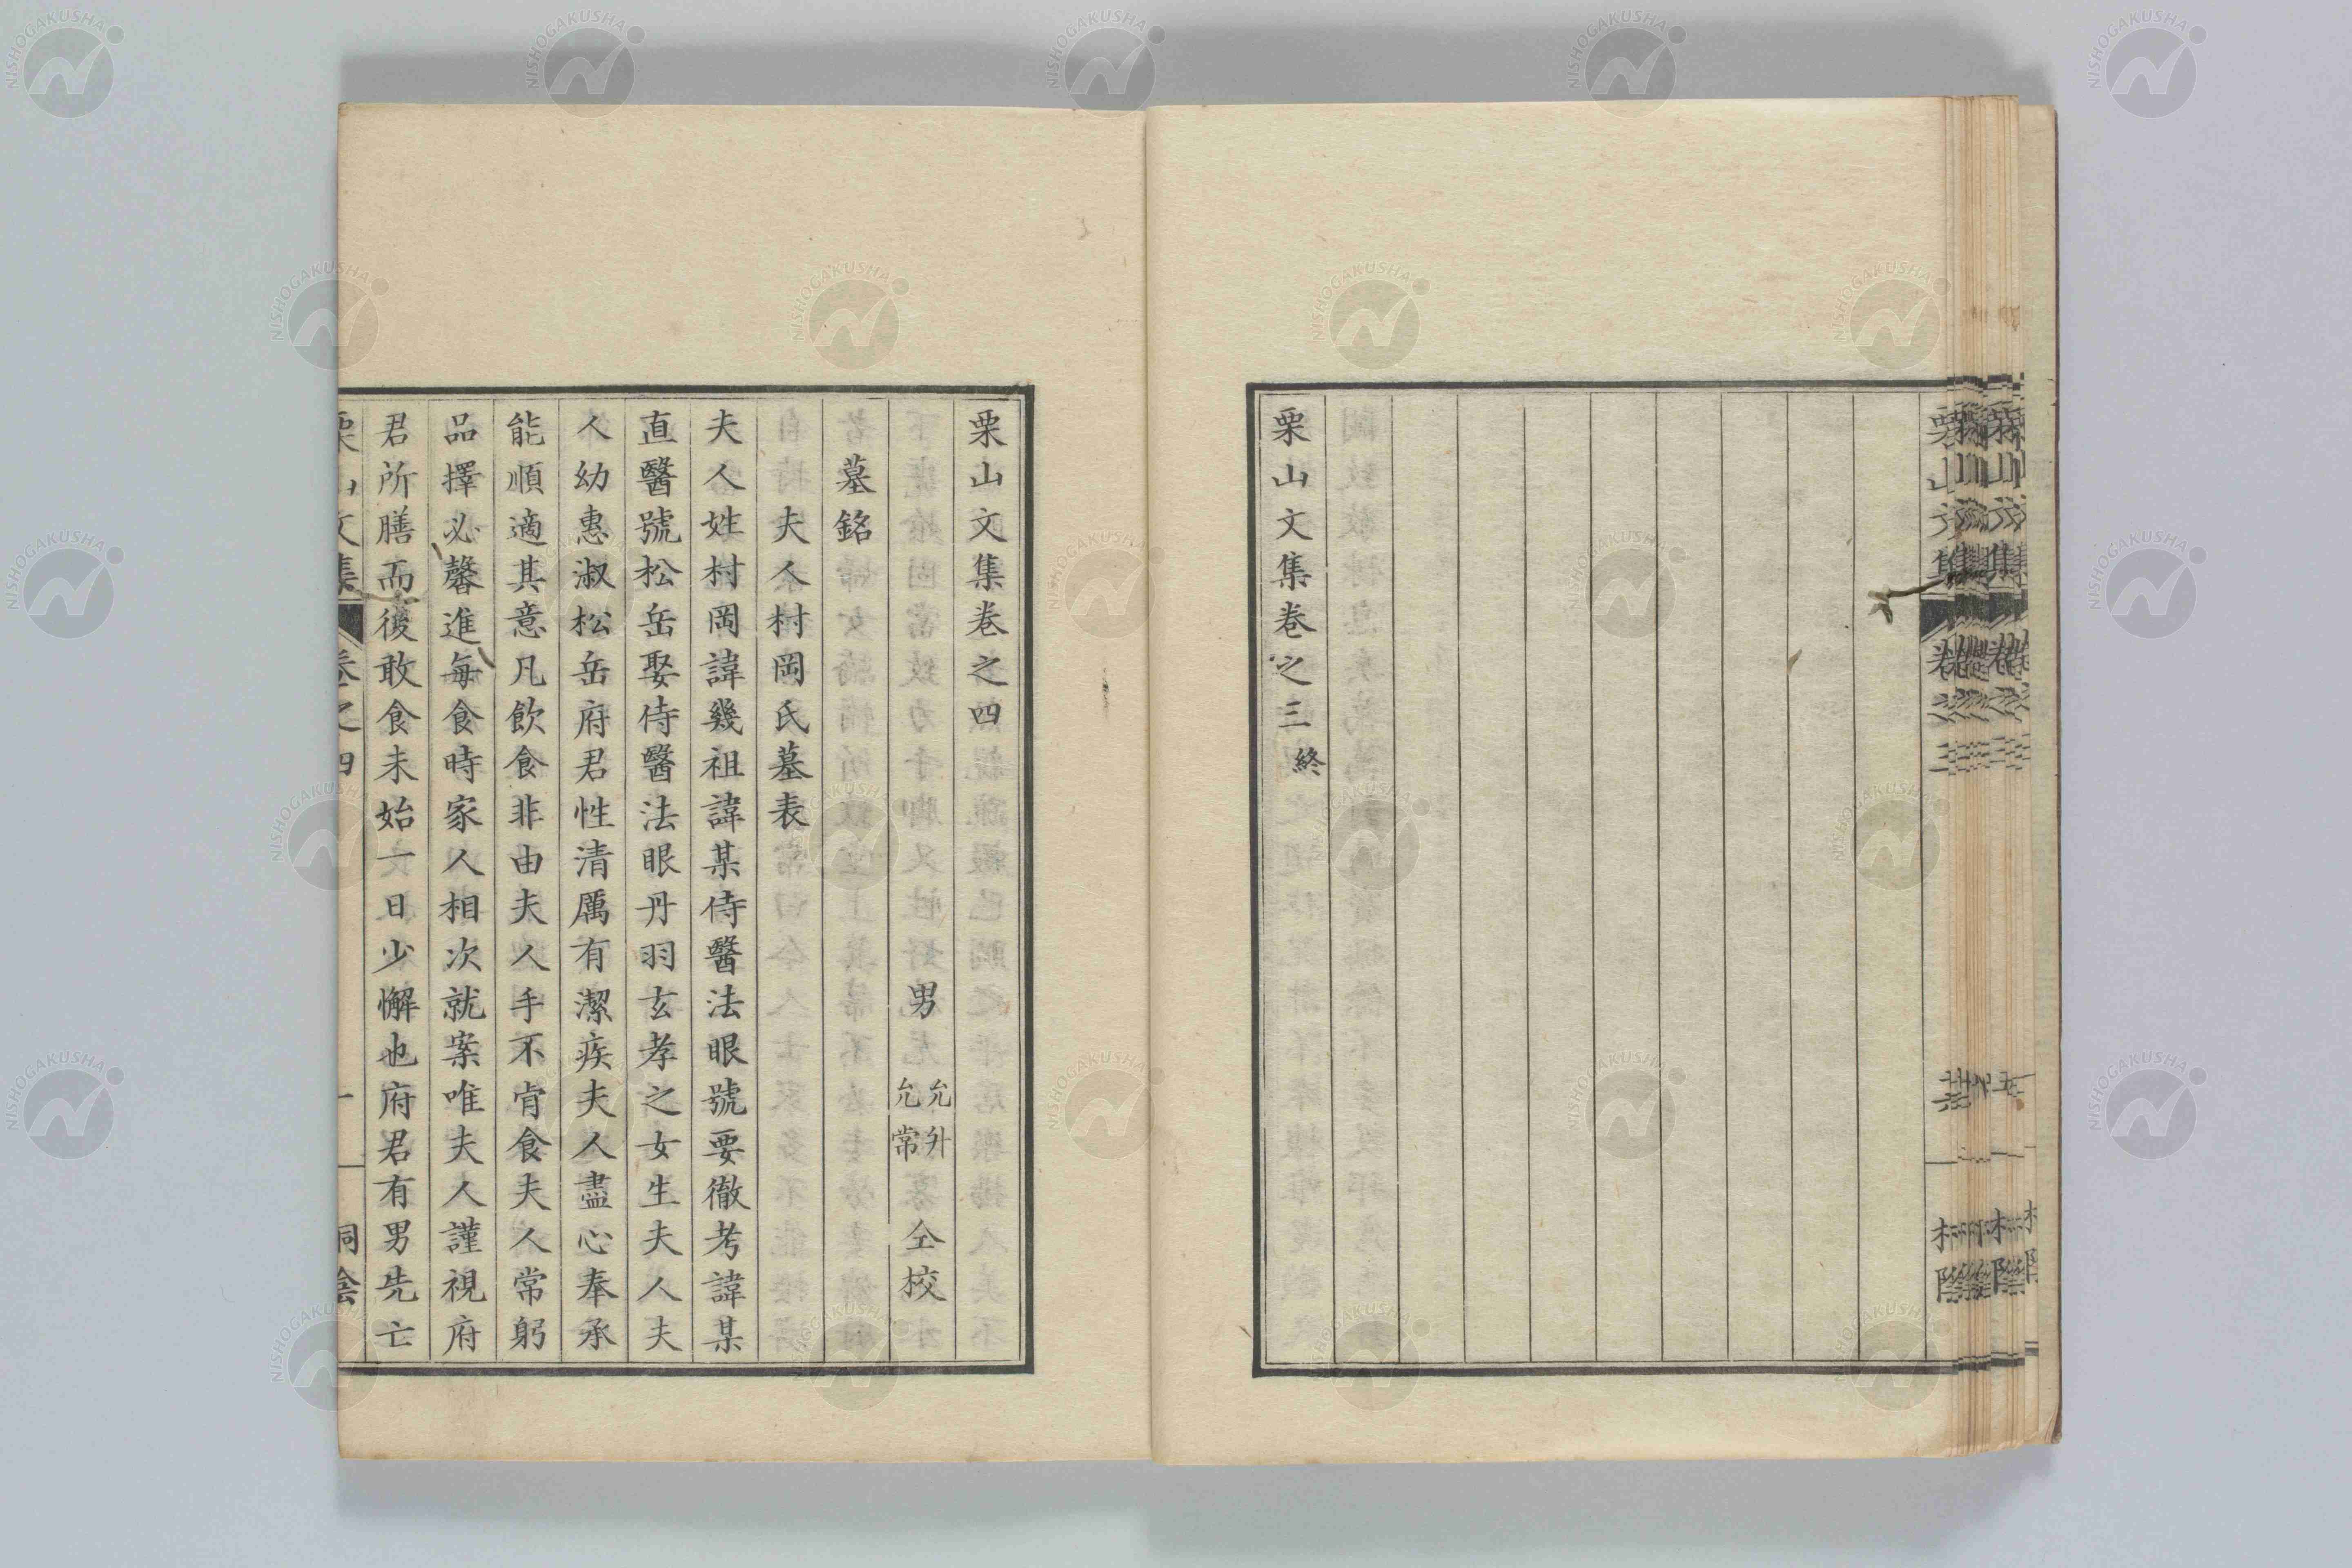 栗山文集卷之三終
栗山文集卷之四
男 允升 允常 仝校
墓銘
夫人村岡氏墓表
夫人姓村岡諱幾祖諱某侍醫法眼號要徹考諱某
直醫號松岳娶侍醫法眼丹羽玄孝之女生夫人夫
人幼惠淑松岳府君性清厲有潔疾夫人盡心奉承
能順適其意凡飲食非由夫人手不肯食夫人常躬
品擇必馨進每食時家人相次就案唯夫人謹視府
君所膳而後敢食未始一日少懈也府君有男先亡
栗山文集 卷之四 一
NISHOGAKUSHA